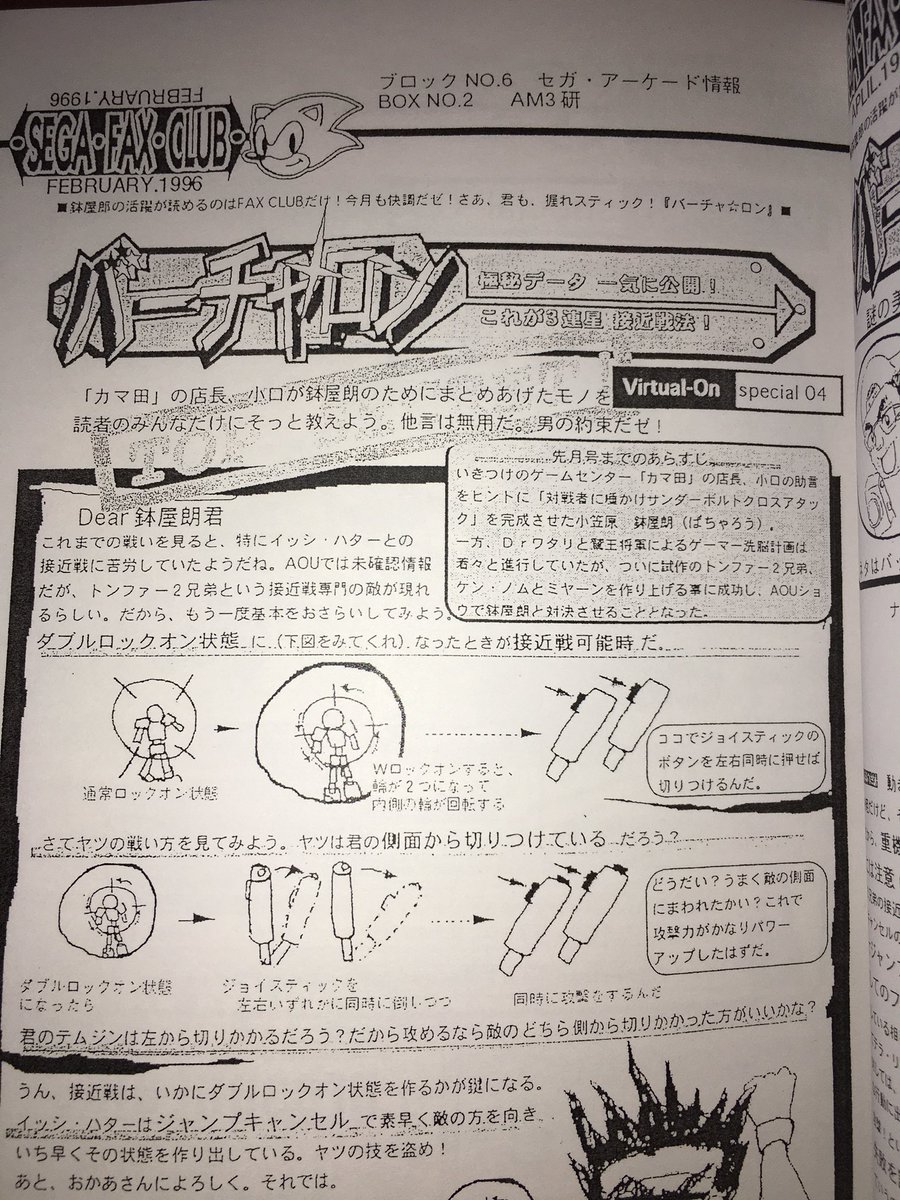 FEBRUARY.1996
SEGA・FAX・CLUB
FEBRUARY.1996
ブロックNO.6 セガ・アーケード情報
BOX NO.2 AM3研
■鉢屋郎の活躍が読めるのはFAX CLUBだけ！今月も快調だゼ！さあ、君も、握れスティック！『バーチャ☆ロン』■
バーチャロン
極秘データ 一気に公開！
これが3連星 接近戦法！
Virtual-On special 04
「カマ田」の店長、小口が鉢屋朗のためにまとめあげたモノを
読者のみんなだけにそっと教えよう。他言は無用だ。男の約束だゼ！
先月号までのあらすじ
いきつけのゲームセンター「カマ田」の店長、小口の助言
をヒントに「対戦者に壇かけサンダーボルトクロスアタッ
ク」を完成させた小笠原 鉢屋朗（ばちゃろう）。
一方、Drワタリと鷲王将軍によるゲーマー洗脳計画は
着々と進行していたが、ついに試作のトンファー2兄弟、
ケン・ノムとミヤーンを作り上げる事に成功し、AOUショ
ウで鉢屋朗と対決させることとなった。
Dear 鉢屋朗君
これまでの戦いを見ると、特にイッシ・ハターとの
接近戦に苦労していたようだね。AOUでは未確認情報
だが、トンファー2兄弟という接近戦専門の敵が現れ
るらしい。だから、もう一度基本をおさらいしてみよう。
ダブルロックオン状態に（下図をみてくれ）なったときが接近戦可能時だ。
通常ロックオン状態
Wロックオンすると、
輪が2つになって
内側の輪が回転する
ココでジョイスティックの
ボタンを左右同時に押せば
切りつけるんだ。
さてヤツの戦い方を見てみよう。ヤツは君の側面から切りつけているだろう？
ダブルロックオン状態
になったら
ジョイスティックを
左右いずれかに同時に倒しつつ
同時に攻撃をするんだ
どうだい？うまく敵の側面
にまわれたかい？これで
攻撃力がかなりパワー
アップしたはずだ。
君のテムジンは左から切りかかるだろう？だから攻めるなら敵のどちら側から切りかかった方がいいかな？
うん、接近戦は、いかにダブルロックオン状態を作るかが鍵になる。
イッシ・ハターはジャンプキャンセルで素早く敵の方を向き
いち早くその状態を作り出している。ヤツの技を盗め！
あと、おかあさんによろしく。それでは。